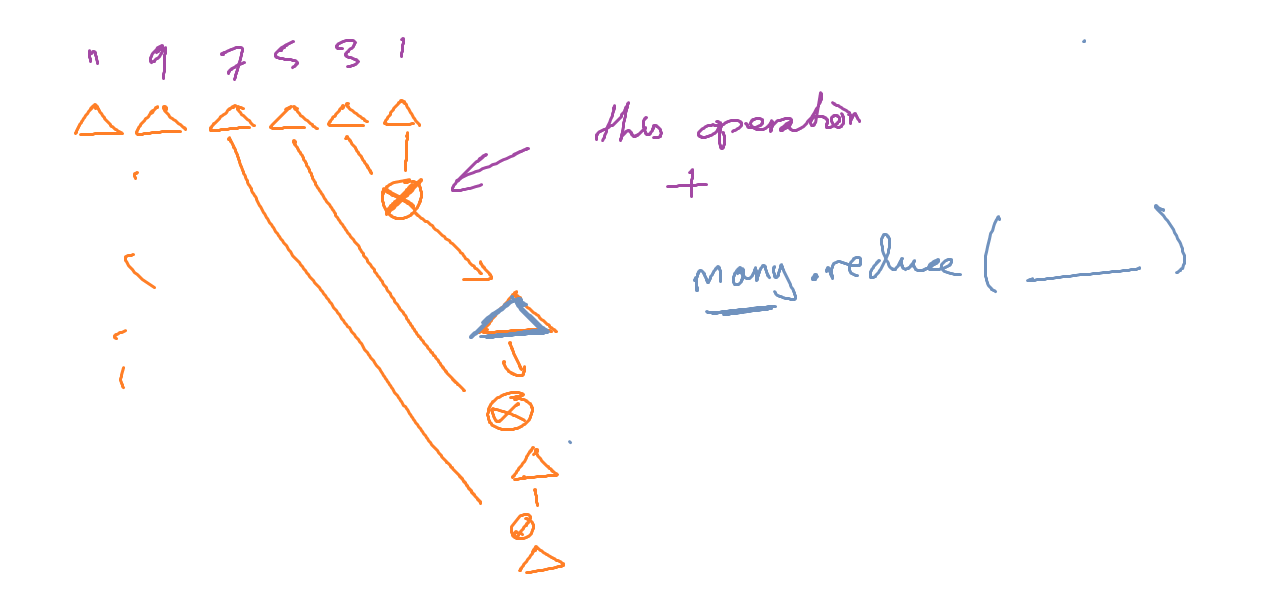 n 9 7 5 3 1
this operation
+
many.reduce(____)